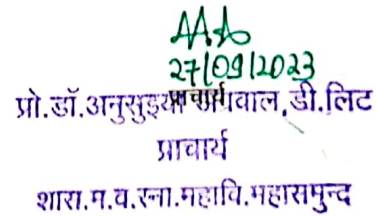 27/09/2023
प्रो.डॉ.अनुसुइया अग्रवाल,डी.लिट
प्राचार्य
शास.म.व.स्ना.महावि.महासमुन्द